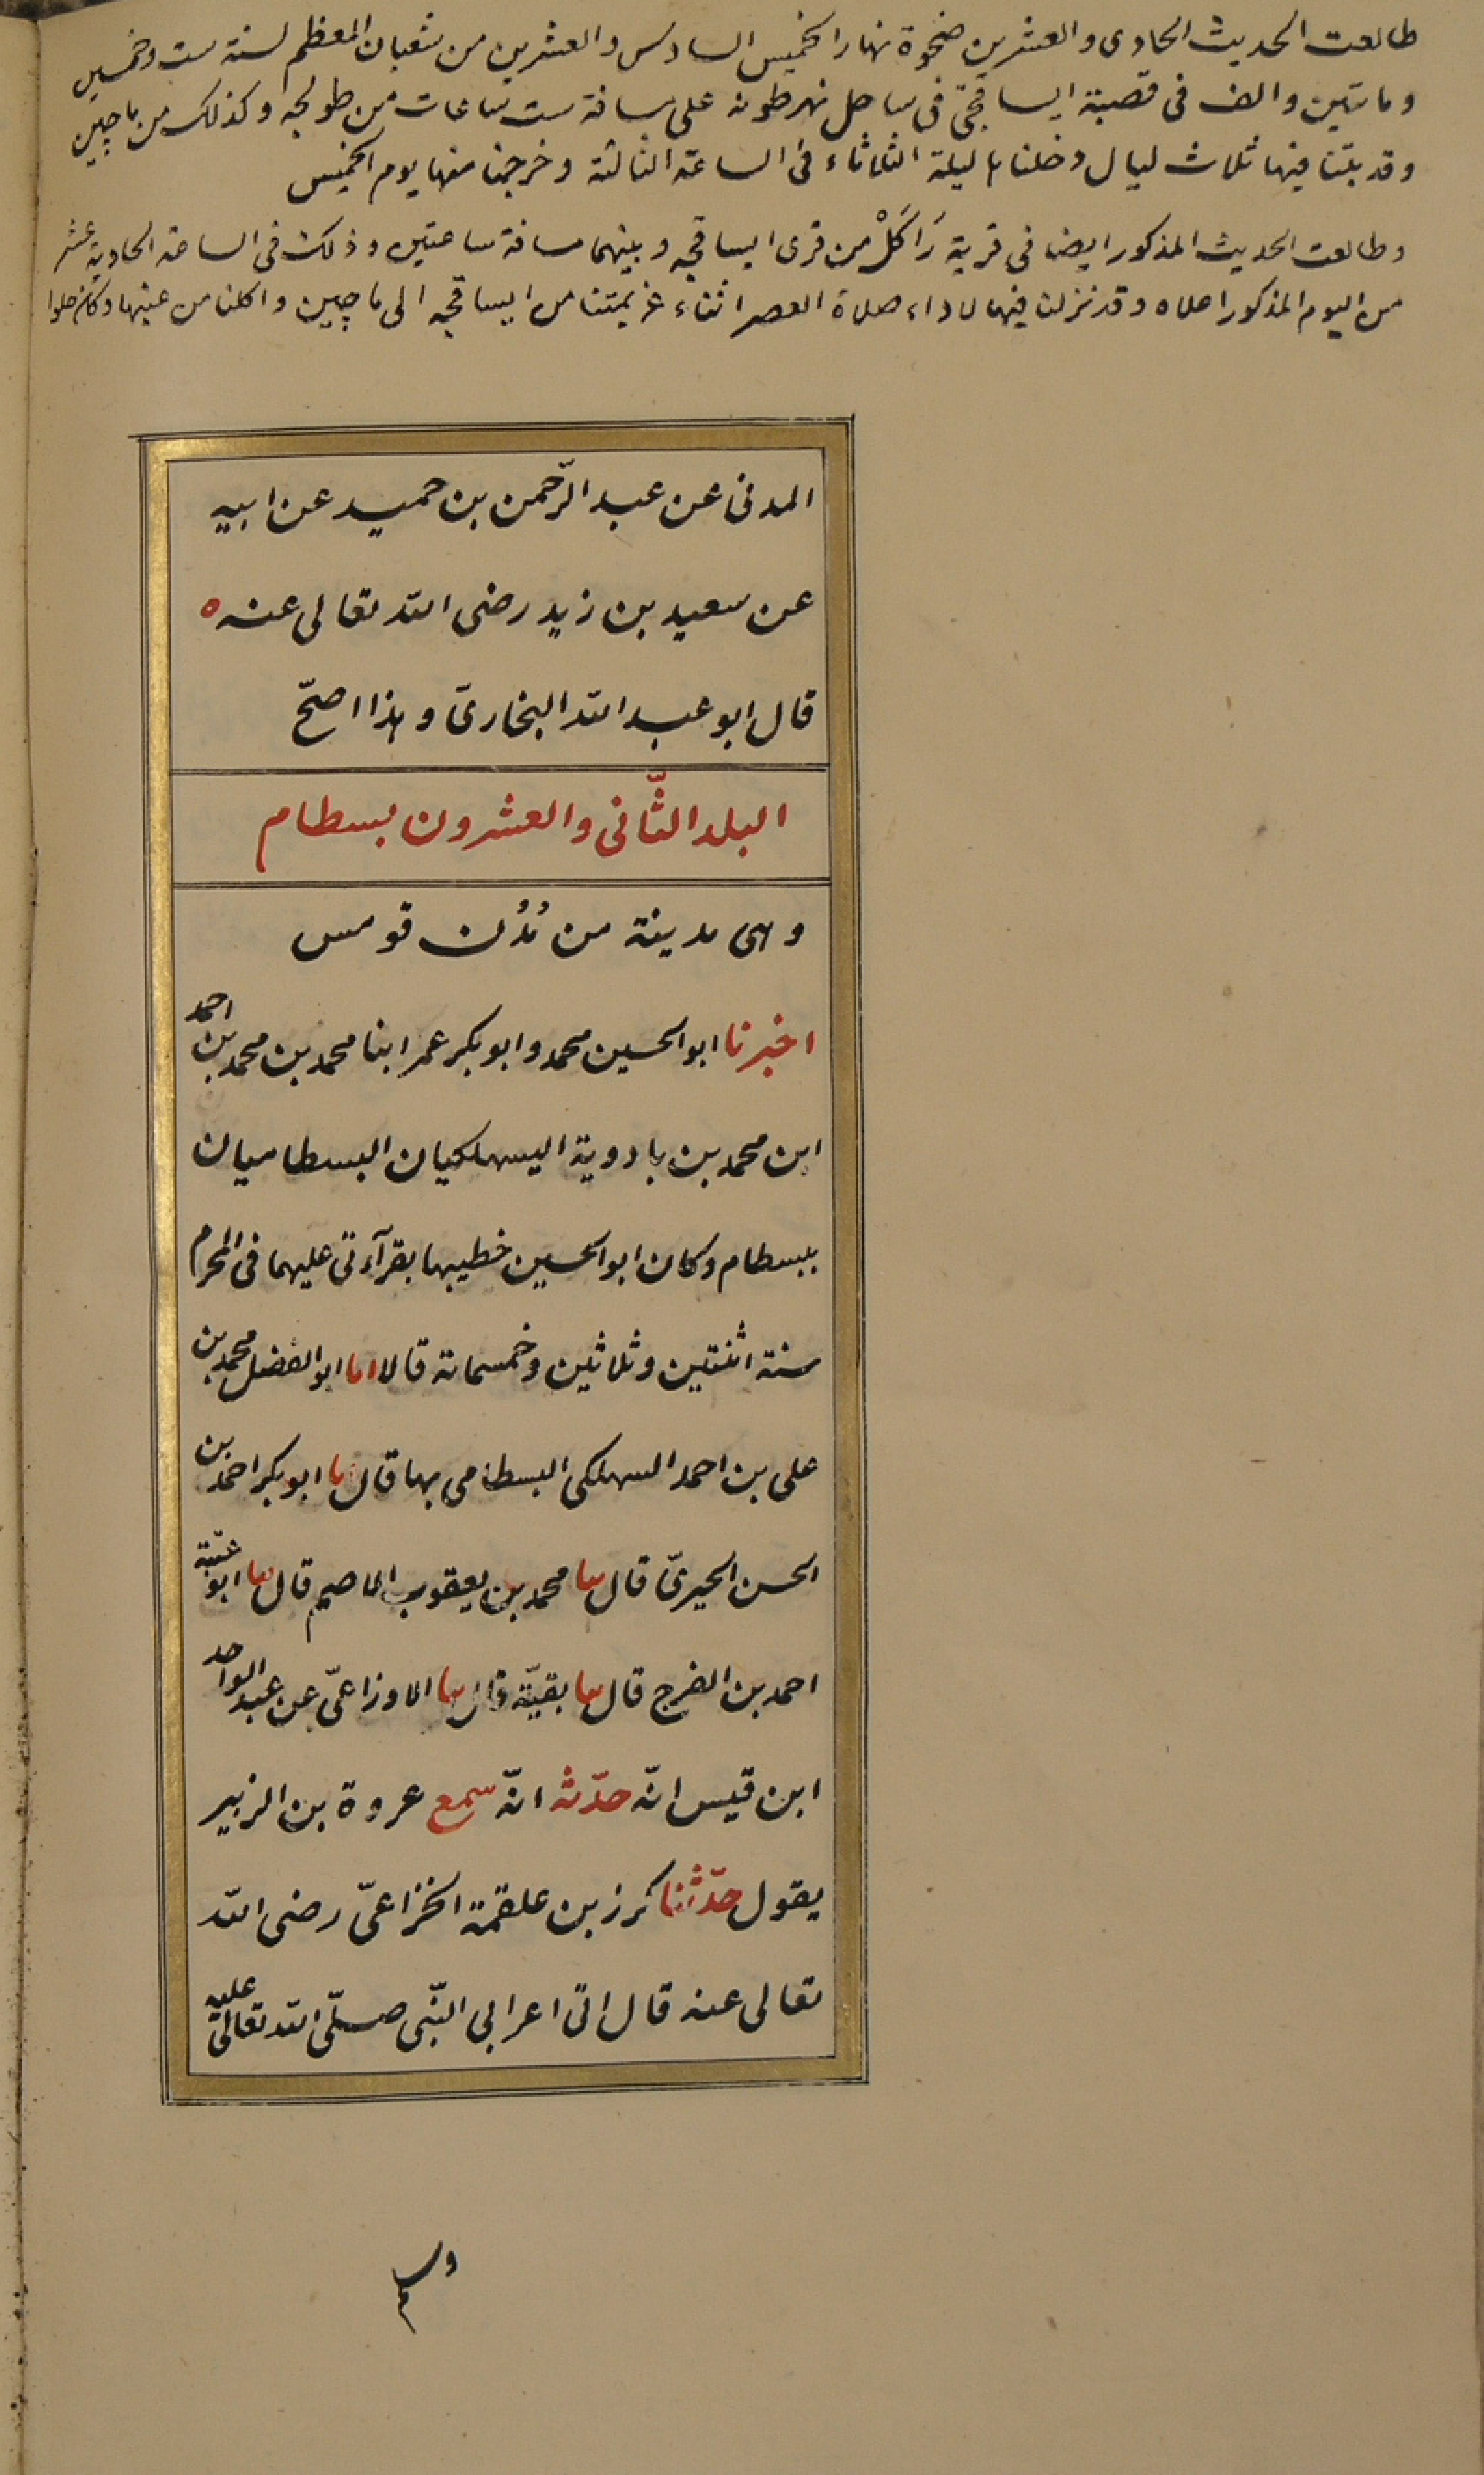 طالعت الحديث الحادى والعشرين ضحوة نهار الخميس السادس والعشرين من شعبان المعظم لسنة ست وخمسين
وماتين والف فى قصبة ايساقجى فى ساحل نهر طونه على مسافة ست ساعات من طولجه وكذلك من ماچين
وقد بتنا فيها ثلاث ليال دخلنا ليلة الثلاثاء فى الساعة الثالثة وخرجنا منها يوم الخميس
وطالعت الحديث المذكور ايضا فى قرية رَاكَلْ من قرى ايساقجه وبينهما مسافة ساعتين وذلك فى الساعة الحادية عشر
من اليوم المذكور اعلاه وقد نزلنا فيها لاداء صلاة العصر اثناء عزيمتنا من ايساقجه الى ماچين واكلنا من عنبها وكان حلوا
المدنى عن عبد الرّحمن بن حميد عن ابيه
عن سعيد بن زيد رضى الله تعالى عنه ه
قال ابو عبد الله البخارىّ وهذا اصحّ
البلد الثّانى والعشرون بسطام
وهى مدينة من مُدُن قومس
اخبرنا ابو الحسين محمد وابو بكر عمر ابنا محمد بن محمد بن احمد
ابن محمد بن بادوية السهلكيان البسطاميان
ببسطام وكان ابو الحسين خطيبها بقرآءتى عليهما فى المحرم
سنة اثنتين وثلاثين وخمسمائة قالا انا ابو الفضل محمد بن
على بن احمد السهلكى البسطامى بها قال نا ابو بكر احمد بن
الحسن الحيرىّ قال ثنا محمد بن يعقوب الاصم قال ثنا ابو عتبة
احمد بن الفرج قال ثنا بقيّة قال ثنا الاوزاعىّ عن عبد الواحد
ابن قيس انّه حدّثه انّه سمع عروة بن الزبير
يقول حدّثنا كرز بن علقمة الخزاعىّ رضى الله
تعالى عنه قال اتى اعرابى النّبى صلّى الله تعالى عليه
وسلم